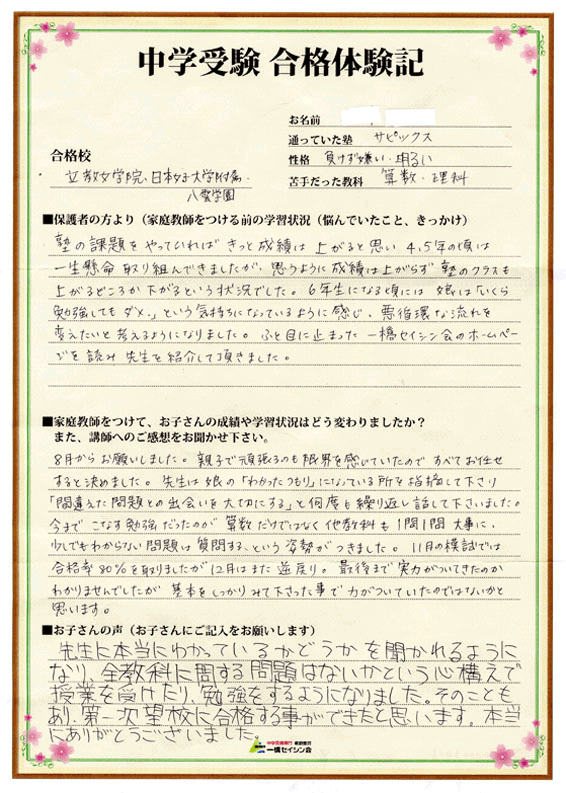 中学受験 合格体験記
お名前
通っていた塾 サピックス
性格 負けず嫌い・明るい
苦手だった教科 算数・理科
合格校
立教女学院、日本女子大学附属、
八雲学園
■保護者の方より（家庭教師をつける前の学習状況（悩んでいたこと、きっかけ）
塾の課題をやっていればきっと成績は上がると思い 4,5年の頃は
一生懸命取り組んできましたが、思うように成績は上がらず 塾のクラスも
上がるどころか下がるという状況でした。6年生になる頃には 娘は「いくら
勉強してもダメ。」という気持ちになっているように感じ、悪循環な流れを
変えたいと考えるようになりました。ふと目に止まった 一橋セイシン会のホームペー
ジを読み 先生を紹介して頂きました。
■家庭教師をつけて、お子さんの成績や学習状況はどう変わりましたか？
また、講師へのご感想をお聞かせ下さい。
8月からお願いしました。親子で頑張るのも限界を感じていたので すべてお任せ
すると決めました。先生は娘の「わかったつもり」になっている所を指摘して下さり
「間違えた問題との出会いを大切にする」と何度も繰り返し話して下さいました。
今まで こなす勉強だったのが 算数だけではなく 他教科も 1問1問 大事に、
少しでもわからない問題は質問する、という姿勢がつきました。11月の模試では
合格率80%を取りましたが 12月はまた逆戻り。最後まで実力がついてきたのか
わかりませんでしたが 基本をしっかりみて下さった事で力がついていたのではないかと
思います。
■お子さんの声（お子さんにご記入をお願いします）
先生に本当にわかっているかどうかを聞かれるように
なり、全教科に関する問題はないかという心構えで
授業を受けたり、勉強をするようになりました。そのことも
あり、第一次望校に合格する事ができたと思います。本当
にありがとうございました。
中学受験専門 家庭教師
一橋セイシン会